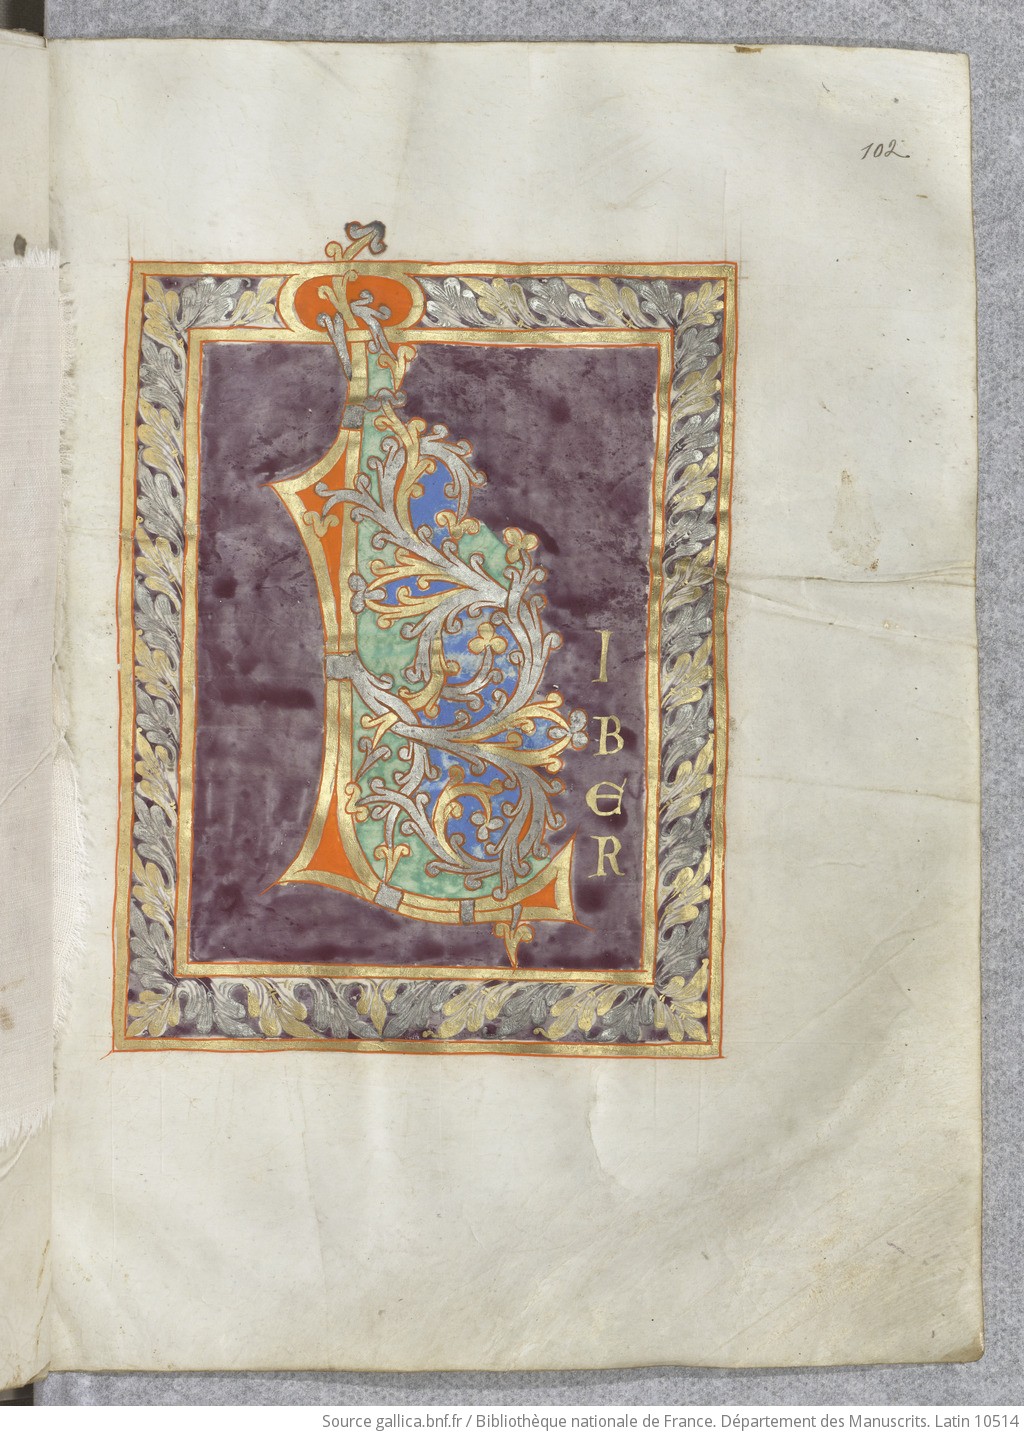 102
L
I
B
E
R
Source gallica.bnf.fr / Bibliothèque nationale de France. Département des Manuscrits. Latin 10514